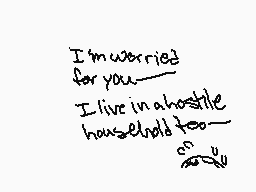 I'm worried
for you—
I live in a hostile
household too—